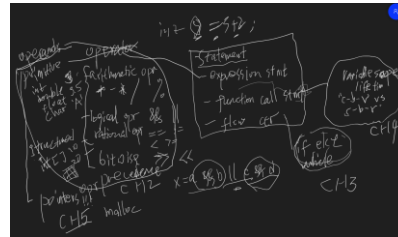 int = 3+2;
operands operator
primitive
int
double
float
char 'A'
arithmetic opr
+ - * /
logical opr &&
rational opr == !=
< >
bitwise >> <<
structured
[ ]
opr precedence
CH2
pointers
CH5 malloc
x=a && b || c && d
Statement
- expression stmt
- function call stmt
- flow ctr
if else
while
CH3
variable scope
lifetime
c-b-v vs
c-b-r
CH4